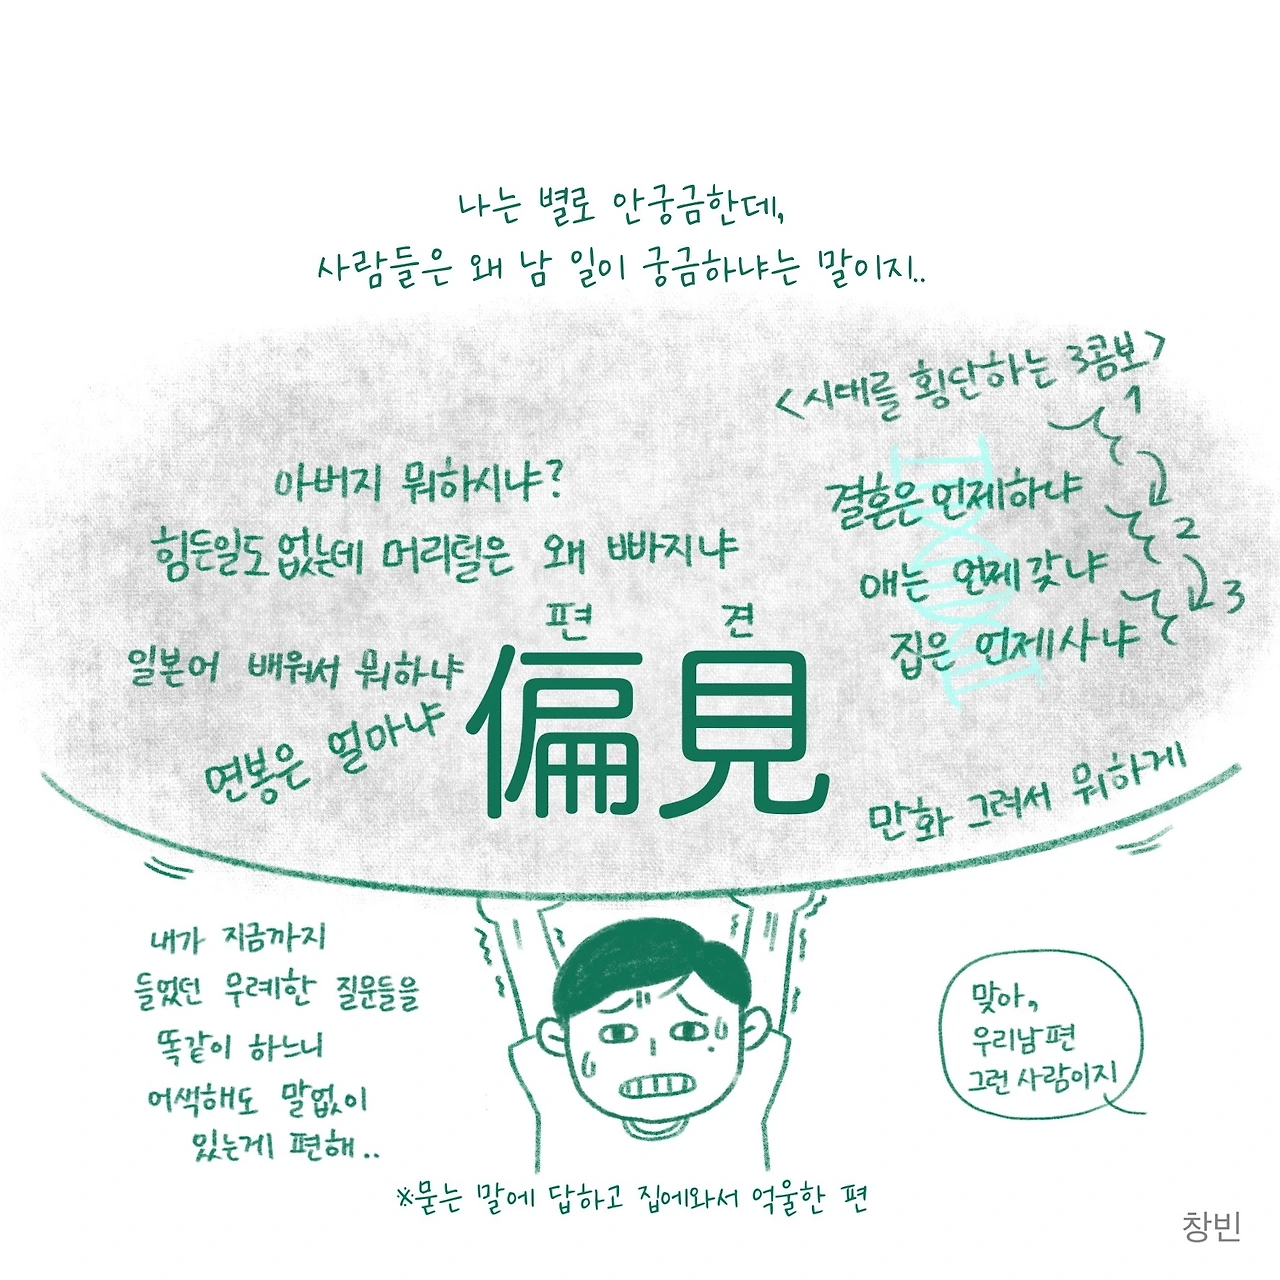 나는 별로 안궁금한데,
사람들은 왜 남 일이 궁금하냐는 말이지..
<시대를 횡단하는 3콤보>
아버지 뭐하시냐?
힘든일도 없는데 머리털은 왜 빠지냐
일본어 배워서 뭐하냐
연봉은 얼마냐
편견
偏見
1
결혼은 언제하냐
2
애는 언제 갖냐
3
집은 언제사냐
만화 그려서 뭐하게
내가 지금까지
들었던 무례한 질문들을
똑같이 하느니
어색해도 말없이
있는게 편해..
맞아,
우리남편
그런 사람이지
※묻는 말에 답하고 집에와서 억울한 편
창빈